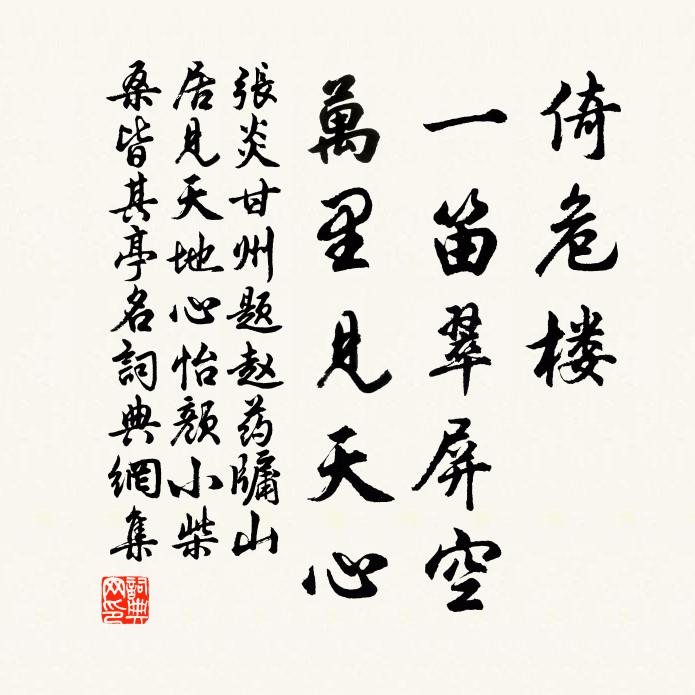 倚危楼
一笛翠屏空
萬里見天心
張炎甘州题赵药牖山
居見天地心怡颜小柴
桑皆其亭名詞典網集
詞典網印